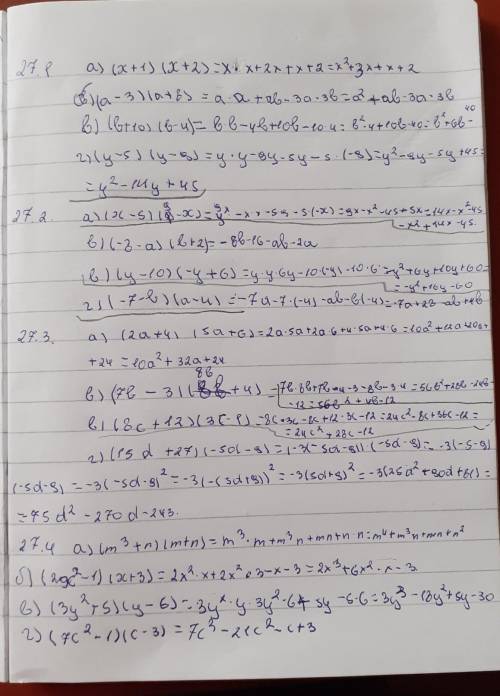 27.1 а) (x+1) (x+2)=x·x+2x+x+2=x²+3x+x+2
б)(a-3)(a+b) = a·a+ab-3a·3b=a²+ab-3a·3b
в) (b+10) (b-4)= b·b-4b+10b-10·4=b²-4+10b-40=b²+6b-40
г)(y-5) (y-9)=y·y-9y-5y-5·(-9)=y²-9y-5y+45=
=y²-14y+45
27.2. а)(x-5)(9-x)=9x-x·x-5·9-5(-x)=9x-x²-45+5x=14x-x²-45
-x²+14x-45.
б)(-8-a)(b+2)=-8b-16-ab-2a
в)(y-10)(-y+6)=y·y·6y-10·(-y)-10·6=-y²+6y+10y+60=
=-y²+16y-60
г)(-7-b)(a-4)=-7a-7·(-4)-ab-b(-4)=-7a+28-ab+4b
27.3. а) (2a+4) (5a+6)=2a·5a+2a·6+4·5a+4·6=10a²+12a+20a+
+24=10a²+32a+24
8b
б)(7b-3)(+4)=7b·8b+7b·4-3·8b-3·4=56b²+28b-24b-
-12=56b²+4b-12
в)(8c+12)(3c-1)=8c·3c-8c+12·3c-12=24c²-8c+36c-12=
=24c²+28c-12
г)(15d+27)(-5d-9)=(-3(-5d-9))(-5d-9)=-3(-5-9)
(-5d-9)=-3(-5d-9)²=-3(-(5d+9))²=-3(5d+9)²=-3(25d²+90d+81)=
=75d²-270d-243.
27.4 а)(m³+n)(m+n)=m³·m+m³n+mn+n·n=m⁴+m³n+mn+n²
б)(2x²-1)(x+3)=2x²·x+2x²·3-x-3=2x³+6x²-x-3
в)(3y²+5)(y-6)=3y²·y·3y²·6+5y-5·6=3y³-18y²+5y-30
г)(7c²-1)(c-3)=7c³-21c²-c+3